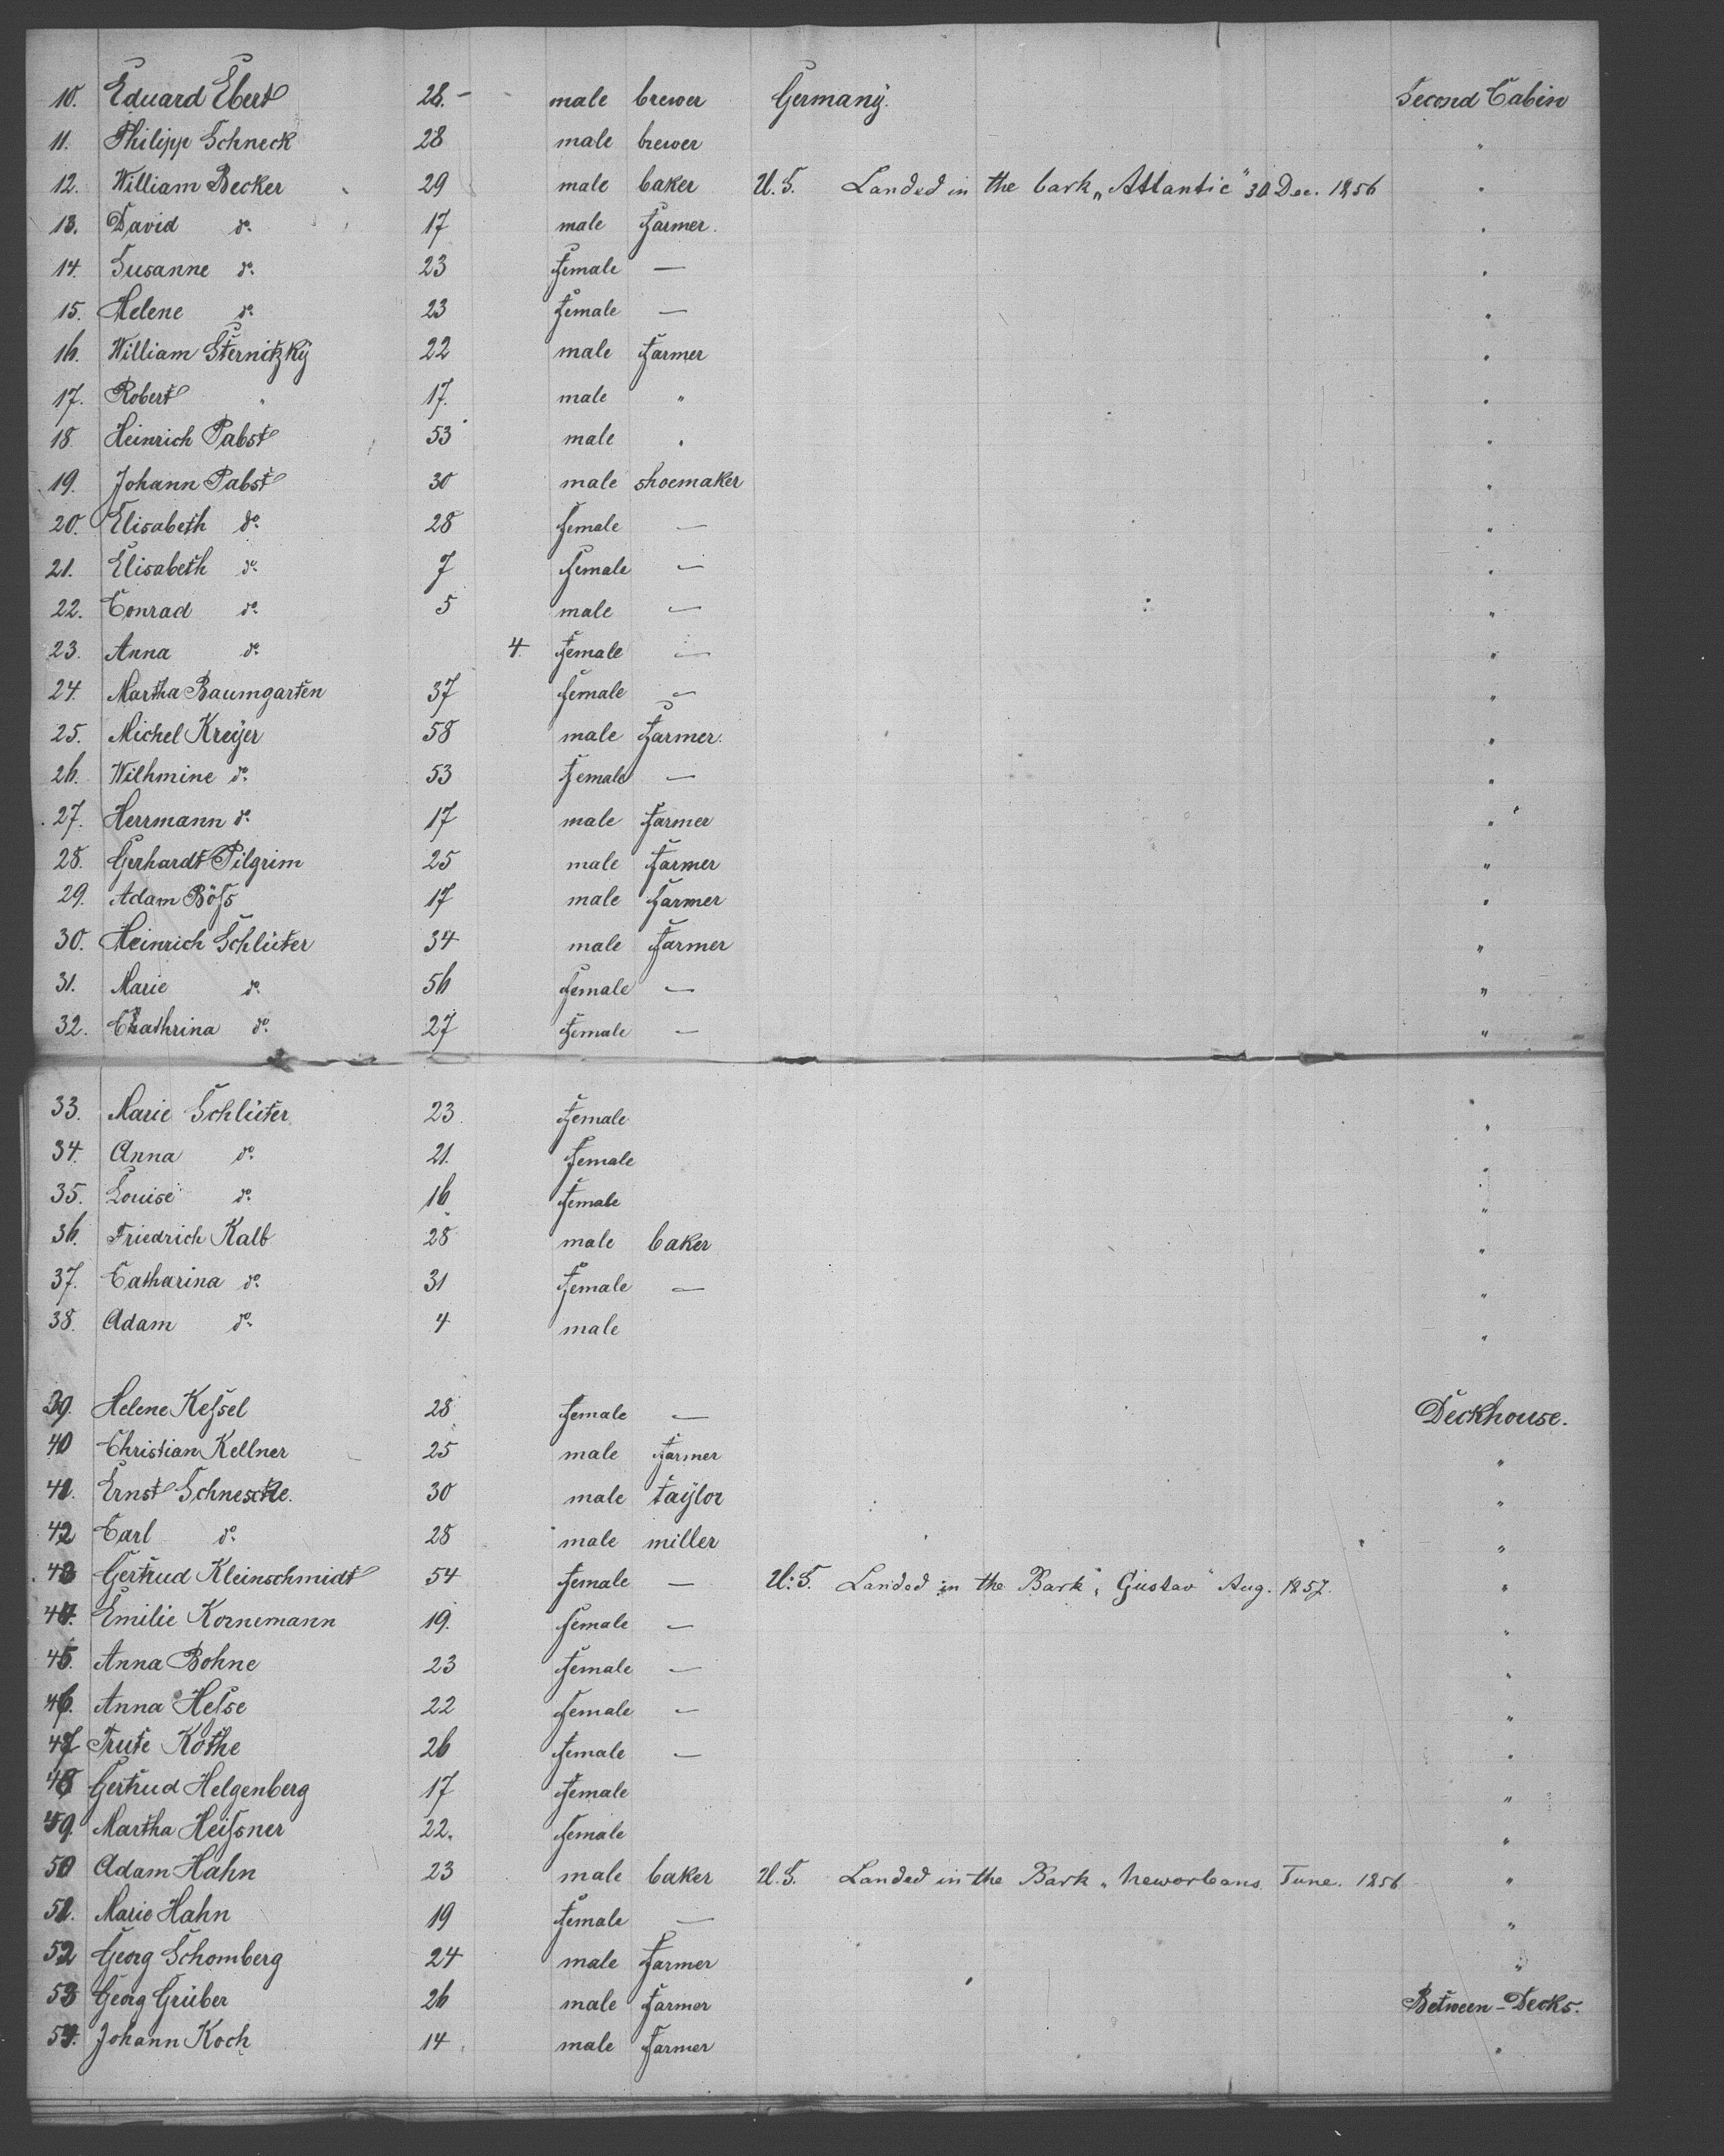 10. Eduard Ebert 28. - male brewer Germany. Second Cabin
11. Philipp Schneck 28 male brewer "
12. William Becker 29 male baker U.S. Landed in the bark „Atlantic" 30 Dec. 1856 "
13. David do 17 male farmer. "
14. Susanne do 23 female — "
15. Helene do 23 female — "
16. William Sternitzky 22 male farmer "
17. Robert " 17. male " "
18. Heinrich Pabst 53 male " "
19. Johann Pabst 30 male shoemaker "
20. Elisabeth do 28 female — "
21. Elisabeth do 7 female — "
22. Conrad do 5 male — "
23. Anna do 4 female — "
24. Martha Baumgarten 37 female — "
25. Michel Kreyer 58 male farmer. "
26. Wilhmine do 53 female — "
27. Herrmann do 17 male farmer "
28. Gerhardt Pilgrim 25 male farmer "
29. Adam Böſs 17 male farmer "
30. Heinrich Schlüter 34 male farmer "
31. Marie do 56 female — "
32. Cathrina do 27 female — "
33. Marie Schlüter 23 female "
34. Anna do 21. female "
35. Louise do 16 female "
36. Friedrich Kalb 28 male baker "
37. Catharina do 31 female — "
38. Adam do 4 male "
39. Helene Keſsel 28 female — Deckhouse.
40 Christian Kellner 25 male farmer "
41. Ernst Schneske. 30 male taylor "
42 Carl do 28 male miller "
43 Gertrud Kleinschmidt 54 female — U.S. Landed in the Bark „Gustav" Aug. 1857. "
44. Emilie Kornemann 19. female — "
45. Anna Bohne 23 female — "
46. Anna Heſse 22 female — "
47 Trute Köthe 26 female — "
48 Gertrud Helgenberg 17 female "
49. Martha Heiſsner 22. female "
50 Adam Hahn 23 male baker U.S. Landed in the Bark „Neworleans June. 1856 "
51. Marie Hahn 19 female — "
52 Georg Schomberg 24 male farmer "
53 Georg Grüber 26 male farmer Between-Decks.
54. Johann Koch 14 male farmer "